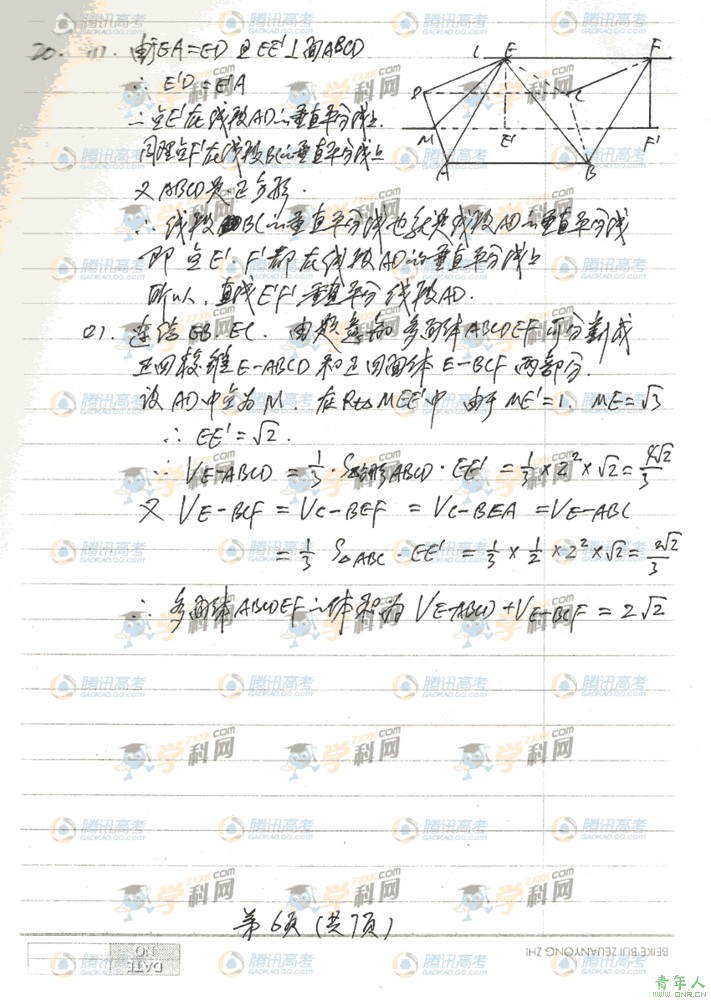 20. (1). 由于EA=ED且EE'⊥面ABCD
∴ E'D=E'A
∴点E'在线段AD的垂直平分线上.
同理点F'在线段BC的垂直平分线上
又ABCD是正方形.
∴线段BC的垂直平分线也就是线段AD的垂直平分线
即 点E'、F'都在线段AD的垂直平分线上
所以、直线E'F'垂直平分线段AD.
(2). 连结EB、EC. 由题意知 多面体ABCDEF可分割成
正四棱锥E-ABCD和正四面体E-BCF两部分.
设AD中点为M. 在Rt△MEE'中 由于ME'=1. ME=√3
∴ EE'=√2.
∴ VE-ABCD = 1/3 · S正方形ABCD · EE' = 1/3 × 2² × √2 = 4√2/3
又 VE-BCF = VC-BEF = VC-BEA = VE-ABC
= 1/3 S△ABC · EE' = 1/3 × 1/2 × 2² × √2 = 2√2/3
∴ 多面体ABCDEF的体积为 VE-ABCD + VE-BCF = 2√2
L E F
D C
M E' F'
A B
第6页(共7页)
DATE
NO
BEIKE BIJI ZEUANYONG ZHI
腾讯高考
GAOKAO.QQ.COM
学科网
ZXXK.com
青年人
WWW.QNR.CN